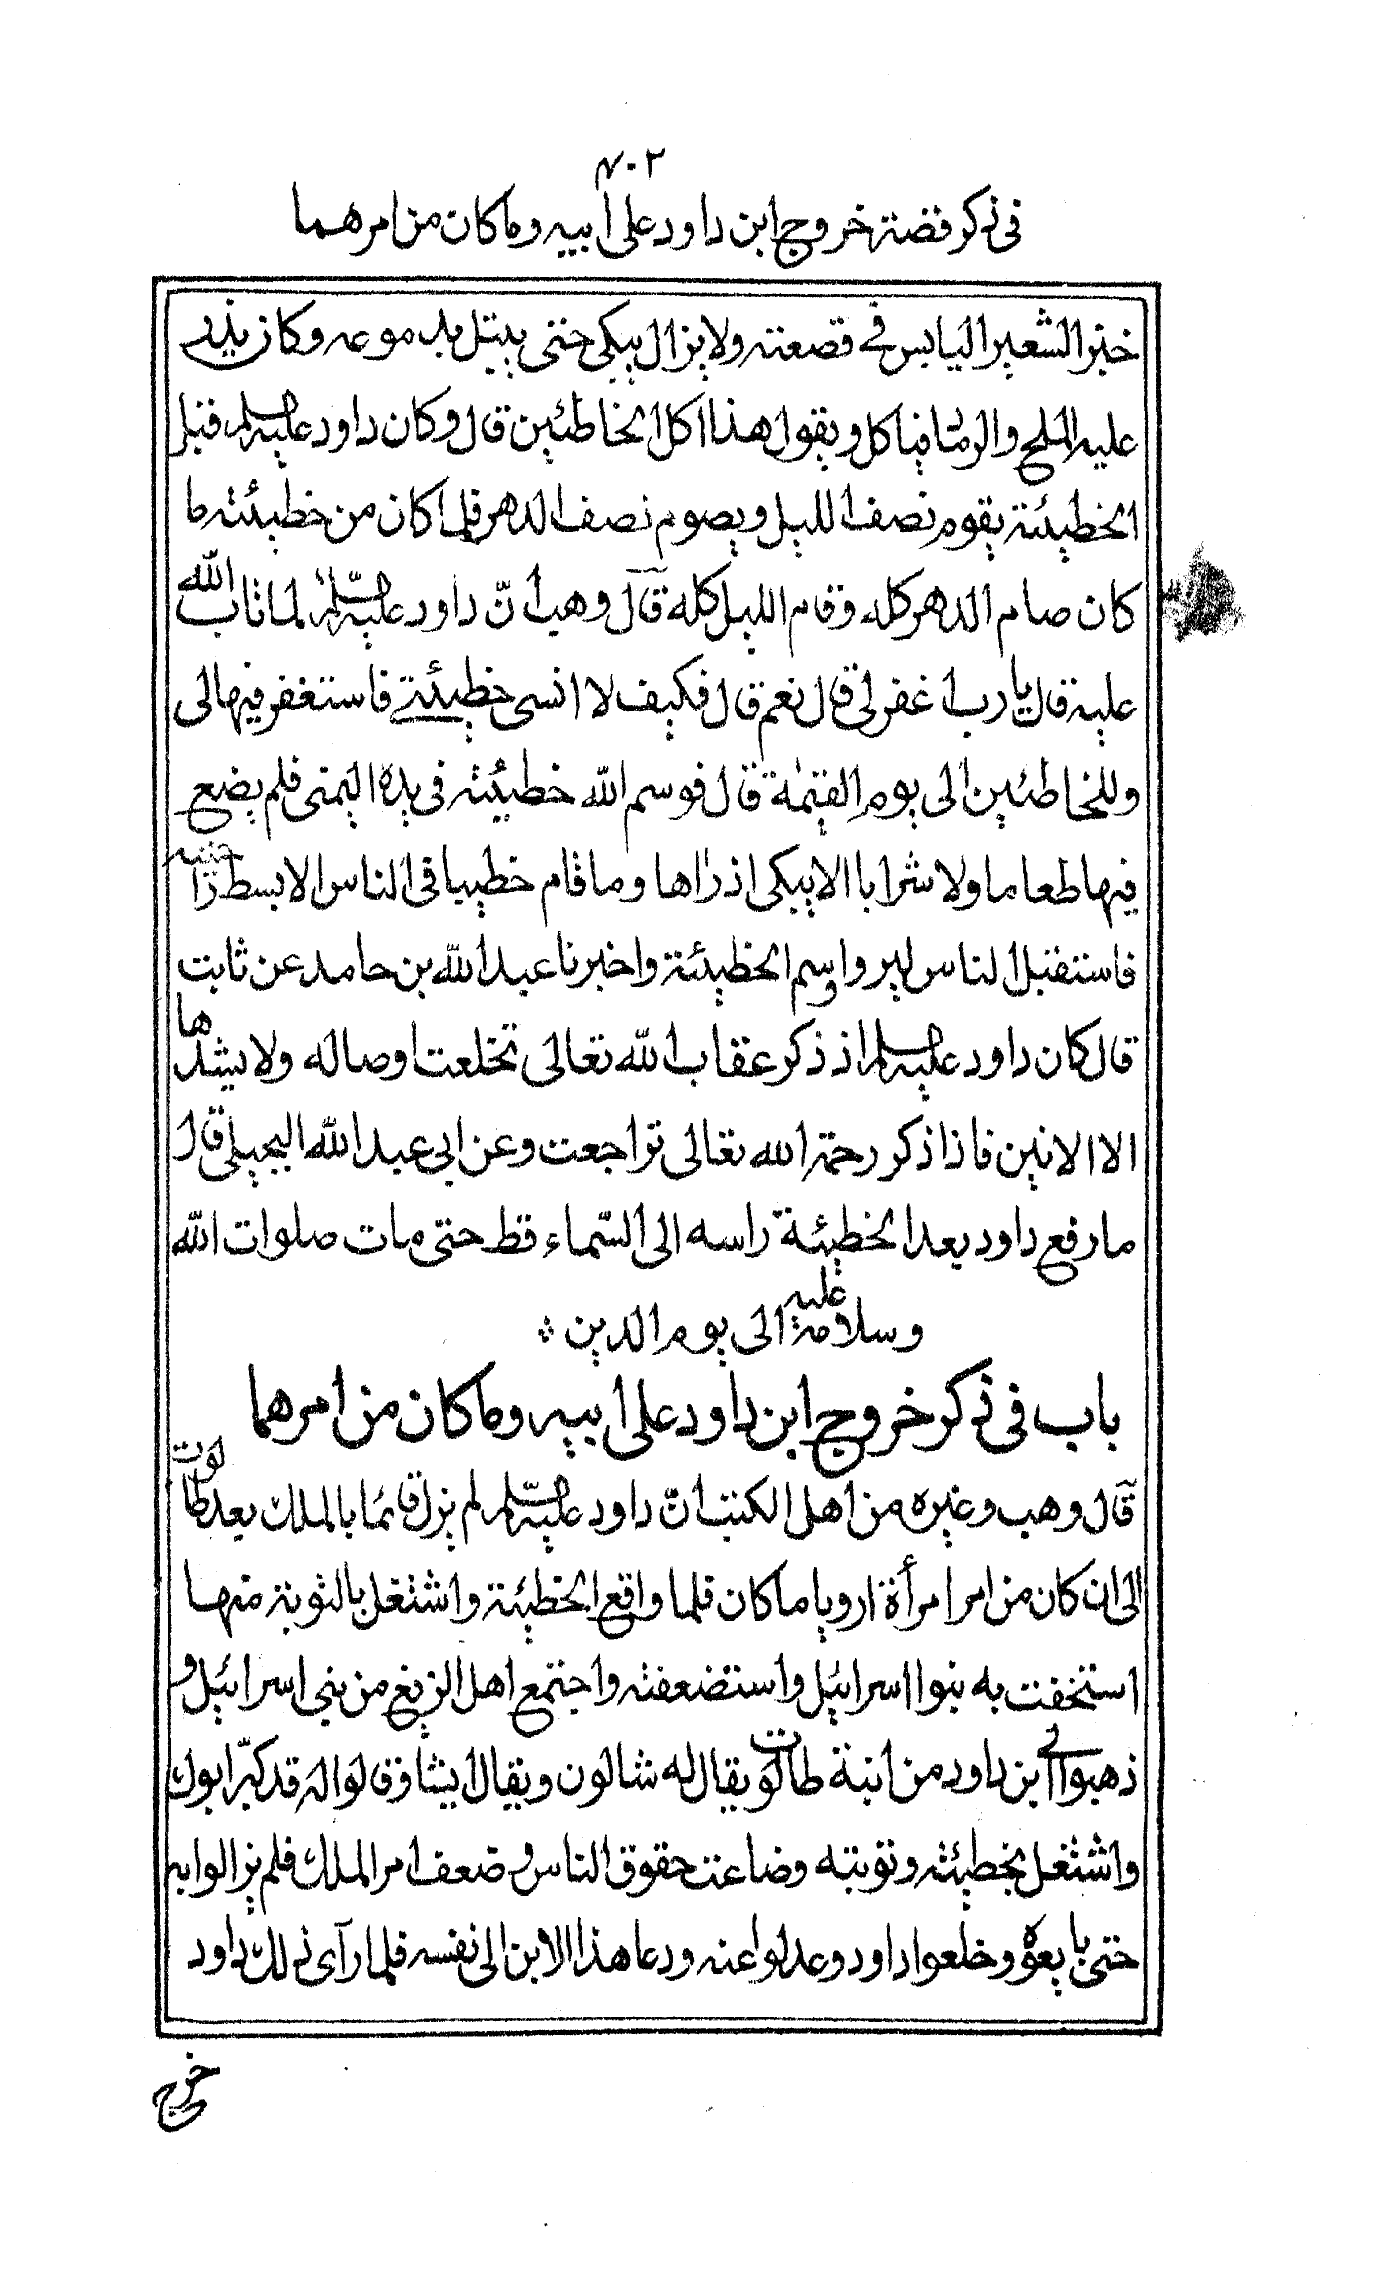 ٧٠٢
في ذكر قصة خروج ابن داود على ابيه وما كان من امرهما
خبز الشعير اليابس في قصعته ولا يزال يبكى حتى يبتل بدموعه وكان يذر
عليه الملح والرماد فياكل ويقول هذا اكل الخاطئين قال وكان داود عليه السلم قبل
الخطيئة يقوم نصف الليل ويصوم نصف الدهر فلما كان من خطيئته ما
كان صام الدهر كله وقام الليل كله قال وهب انّ داود عليه السّلم لما تاب الله
عليه قال يا رب اغفر لى قال نعم قال فكيف لا انسى خطيئتي فاستغفر فيها لى
وللخاطئين الى يوم القيمة قال فوسم الله خطيئته في يده اليمنى فلم يضع
فيها طعاما ولا شرابا الا يبكى اذ راها وما قام خطيبا في الناس الا بسط راحته
فاستقبل الناس ليروا وسم الخطيئة واخبرنا عبد الله بن حامد عن ثابت
قال كان داود عليه السلم اذ ذكر عقاب الله تعالى تخلعت اوصاله ولا يشدها
الا الانين فاذا ذكر رحمة الله تعالى تراجعت وعن ابي عبد الله البجيلى قال
ما رفع داود بعد الخطيئة راسه الى السّماء قط حتى مات صلوات الله
وسلامه عليه الى يوم الدين
باب في ذكر خروج ابن داود على ابيه وما كان من امرهما
قال وهب وغيره من اهل الكتب انّ داود عليه السّلم لم يزل قائما بالملك بعد طالوت
الى ان كان من امر امرأة اروياما كان فلما واقع الخطيئة واشتغل بالتوبة منها
استخفت به بنوا اسرائيل واستضعفته واجتمع اهل الزيغ من بني اسرائيل و
ذهبوا الى ابن داود من ابنة طالوت يقال له شالون ويقال ايشا وقالوا له قد كبّر ابوك
واشتغل بخطيئته وتوبته وضاعت حقوق الناس وضعف امر الملك فلم يزالوا به
حتى بايعوه وخلعوا داود وعدلوا عنه ودعا هذا الابن الى نفسه فلما رآى ذلك داود
خرج